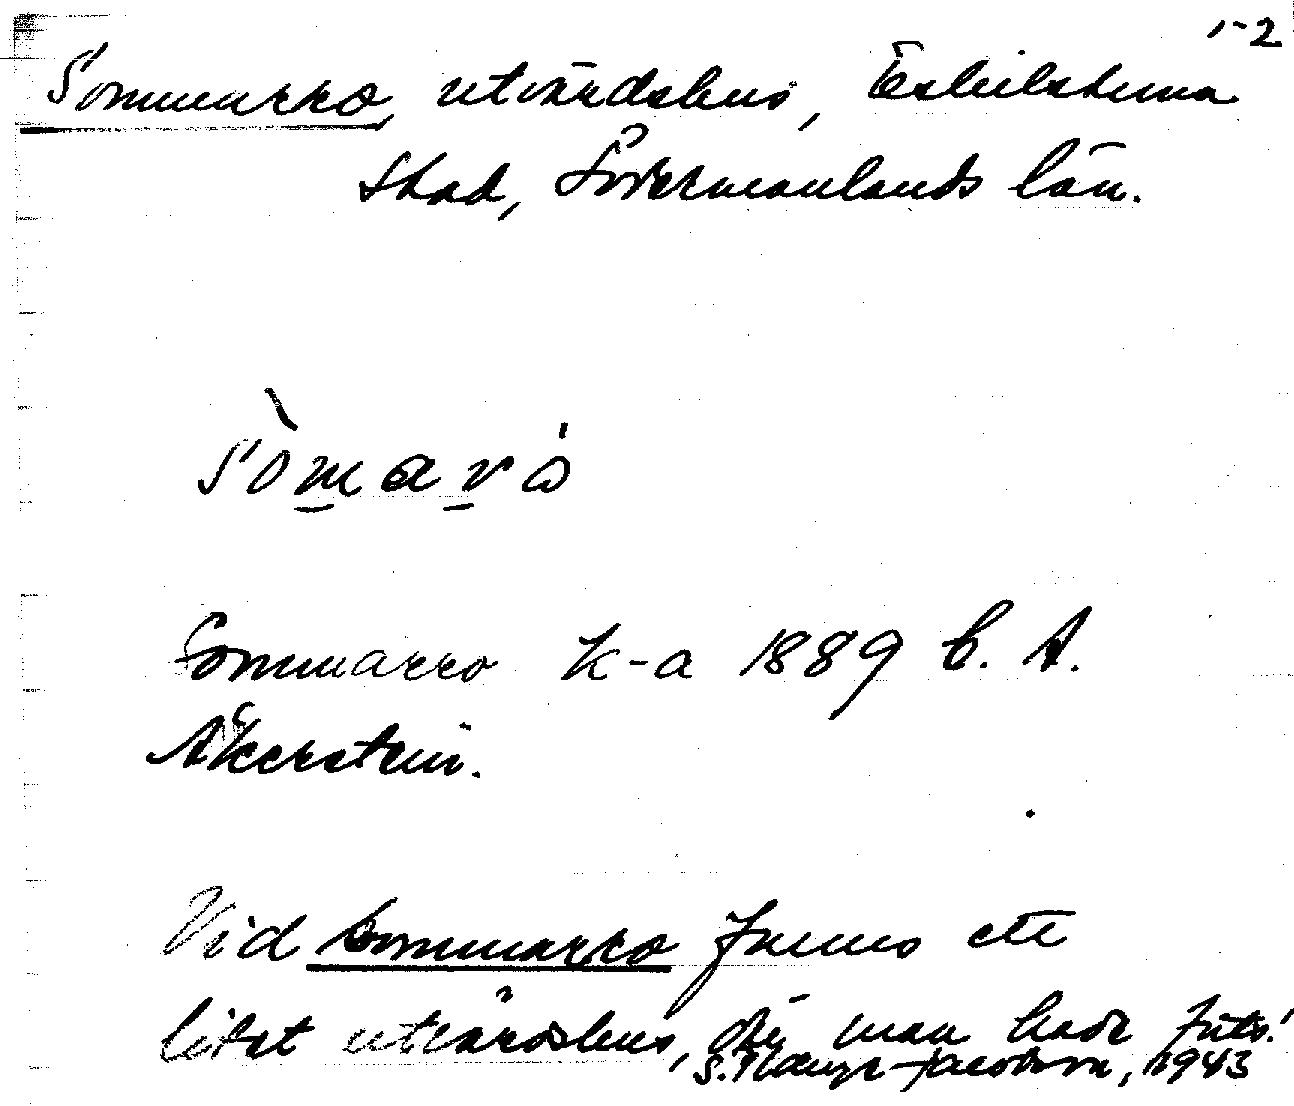 1-2
Sommarro, utvärdshus, Eskilstuna
Stad, Södermanlands län.
sòmaró
Sommarro k-a 1889 C. A.
Åkerstein.
Vid Sommarro fanns ett
litet utvärdshus, där man hade
Jacobson, 1943